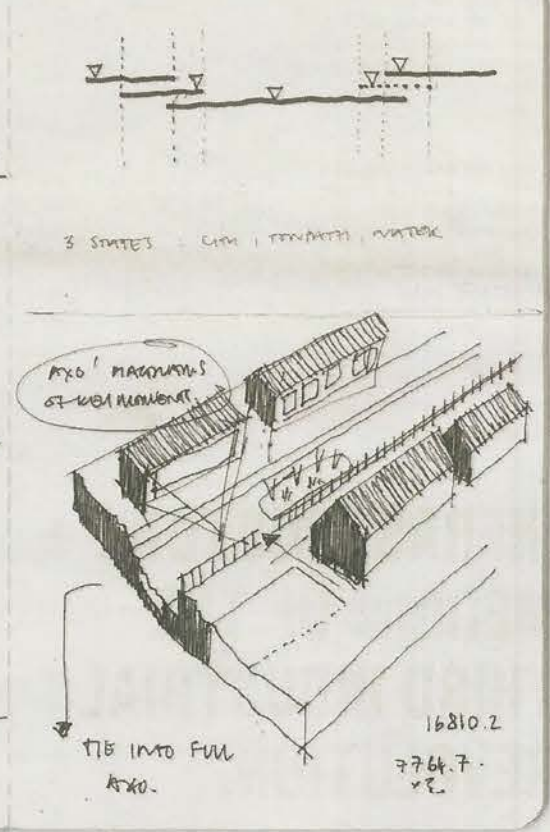 3 STATES : CITY, TOWPATH, WATER
AXO' DIAGRAMS
OF KEY MOMENTS.
TIE INTO FULL
AXO.
16810.2
7764.7.